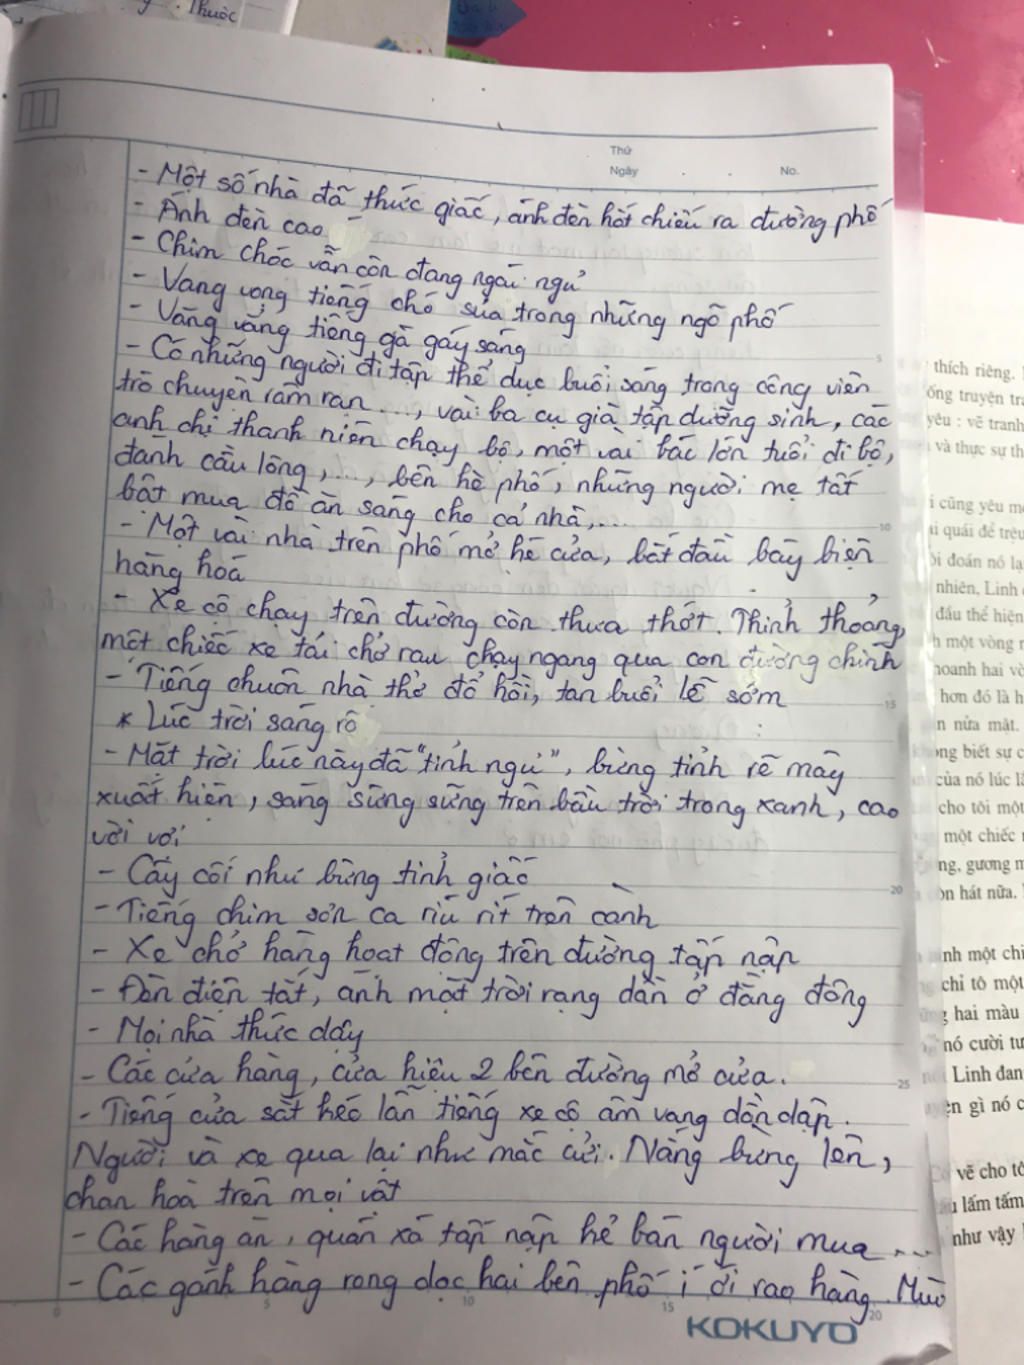 Thuốc
Thứ
Ngày . . No.
- Một số nhà đã thức giấc, ánh đèn hắt chiếu ra đường phố
- Ánh đèn cao
- Chim chóc vẫn còn đang ngái ngủ
- Vang vọng tiếng chó sủa trong những ngõ phố
- Văng vẳng tiếng gà gáy sáng
- Có những người đi tập thể dục buổi sáng trong công viên
trò chuyện râm ran ..., vài ba cụ già tập dưỡng sinh, các
anh chị thanh niên chạy bộ, một vài bác lớn tuổi đi bộ,
đánh cầu lông, ..., bên hè phố, những người mẹ tất
bật mua đồ ăn sáng cho cả nhà,...
- Một vài nhà trên phố mở hé cửa, bắt đầu bày biện
hàng hoá
- Xe cộ chạy trên đường còn thưa thớt. Thỉnh thoảng,
một chiếc xe tải chở rau chạy ngang qua con đường chính
- Tiếng chuôn nhà thờ đổ hồi, tan buổi lễ sớm
* Lúc trời sáng rõ
- Mặt trời lúc này đã "tỉnh ngủ", bừng tỉnh rẽ mây
xuất hiện, sáng sừng sững trên bầu trời trong xanh, cao
vời vợi
- Cây cối như bừng tỉnh giấc
- Tiếng chim sơn ca ríu rít trên cành
- Xe chở hàng hoạt động trên đường tấp nập
- Đèn điện tắt, ánh mặt trời rạng dần ở đằng đông
- Mọi nhà thức dậy
- Các cửa hàng, cửa hiệu 2 bên đường mở cửa.
- Tiếng cửa sắt kéo lẫn tiếng xe cộ âm vang dồn dập.
Người và xe qua lại như mắc cửi. Nắng bừng lên,
chan hoà trên mọi vật
- Các hàng ăn, quán xá tấp nập kẻ bán người mua ...
- Các gánh hàng rong dọc hai bên phố í ới rao hàng. Mùi
5
10
15
20
25
0 5 10 15 20
KOKUYO
thích riêng.
ống truyện tra
yêu : vẽ tranh
và thực sự th
i cũng yêu m
ai quái để trêu
đoán nó lạ
nhiên, Linh
đấu thể hiện
một vòng
noanh hai vò
hơn đó là h
n nửa mặt.
ông biết sự c
của nó lúc lâ
cho tôi một
một chiếc
ng, gương m
òn hát nữa.
nh một chi
chỉ tô một
g hai màu
nó cười tư
Linh đan
ện gì nó c
vẽ cho tô
lấm tấm
như vậy